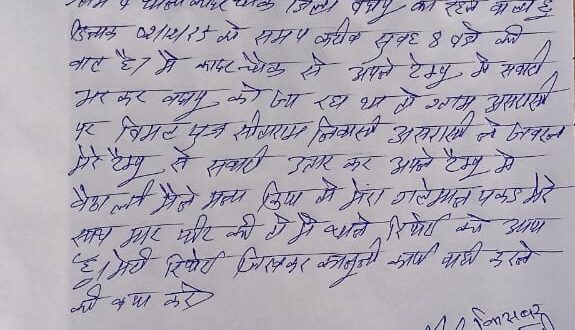 ग्राम व थाना कादर चौक जिला बदायूं का रहने वाला हूं
दिनांक 02/12/25 को समय करीब सुबह 8 बजे की
बात है। मैं कादर चौक से अपने टेम्पू में सवारी
भर कर बदायूं को जा रहा था तो ग्राम असरासी
पर विमल पुत्र सीताराम निवासी असरासी ने जबरन
मेरे टैम्पू से सवारी उतार कर अपने टैम्पू में
बैठा ली मैंने मना किया तो मेरा गलेमान पकड मेरे
साथ मार पीट की तो मैं थाने रिपोर्ट को आया
हूं। मेरी रिपोर्ट लिखकर कानूनी कार्यवाही करने
की कृपा करें